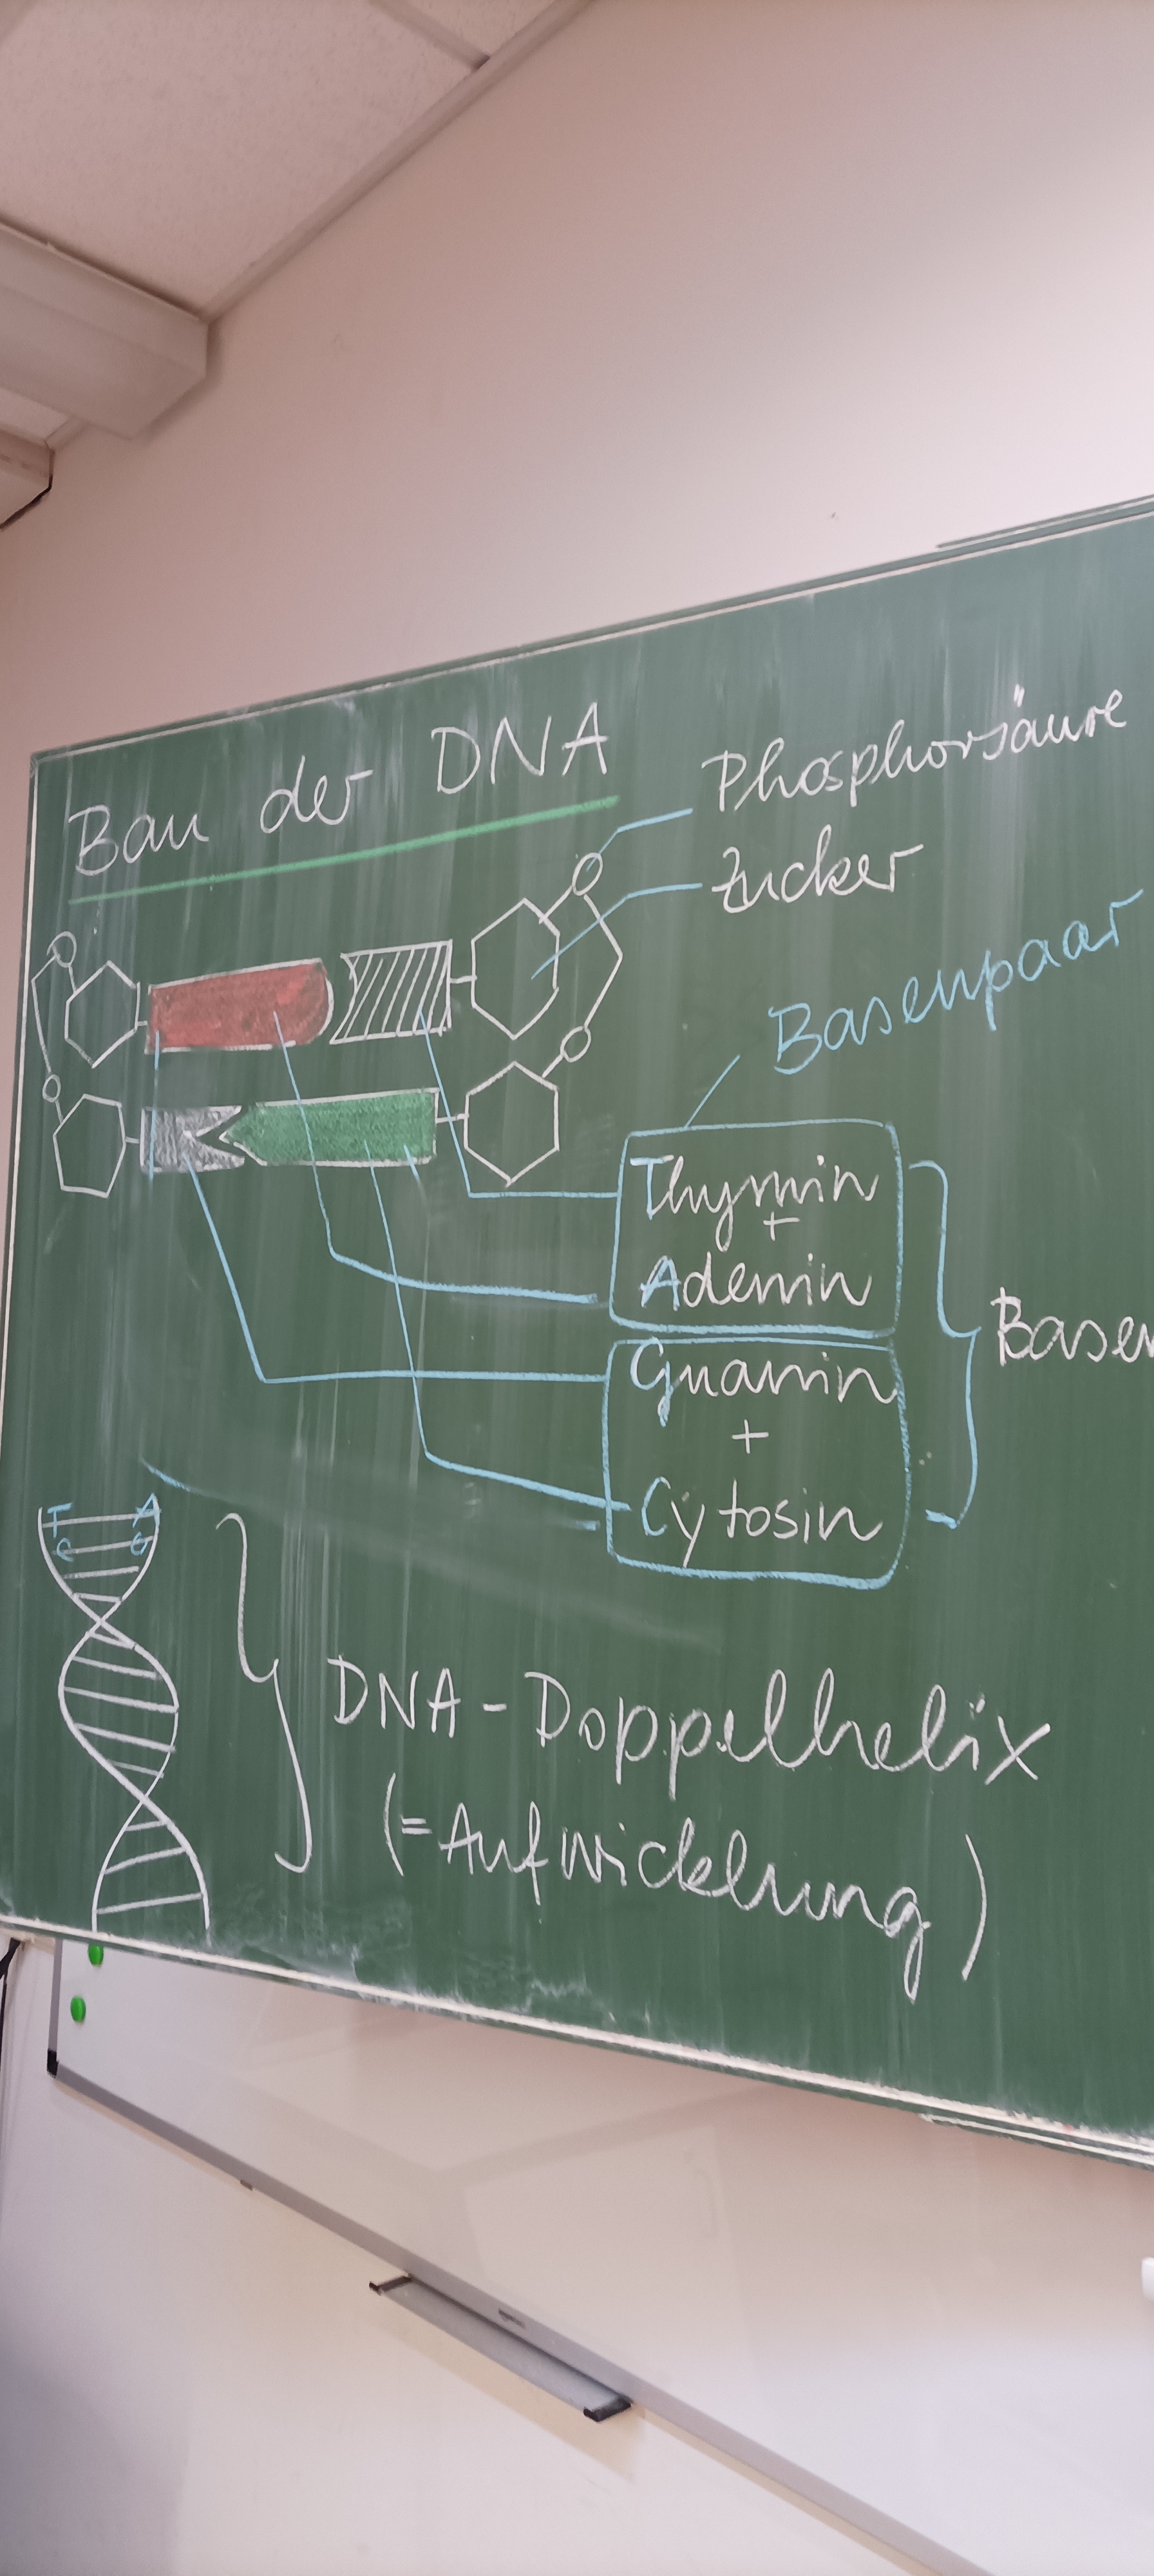 Bau der DNA
Phosphorsäure
Zucker
Basenpaar
Thymin
+
Adenin
Guanin
+
Cytosin
Basen
T A
C G
DNA-Doppelhelix
(=Aufwicklung)